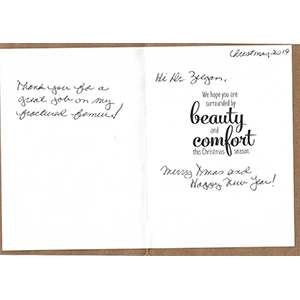 Thank you for a
great job on my
fractured femur!
Christmas, 2019
Hi Dr.
We hope you are
surrounded by
beauty
and
comfort
this Christmas
season.
Merry Xmas and
Happy New Year!